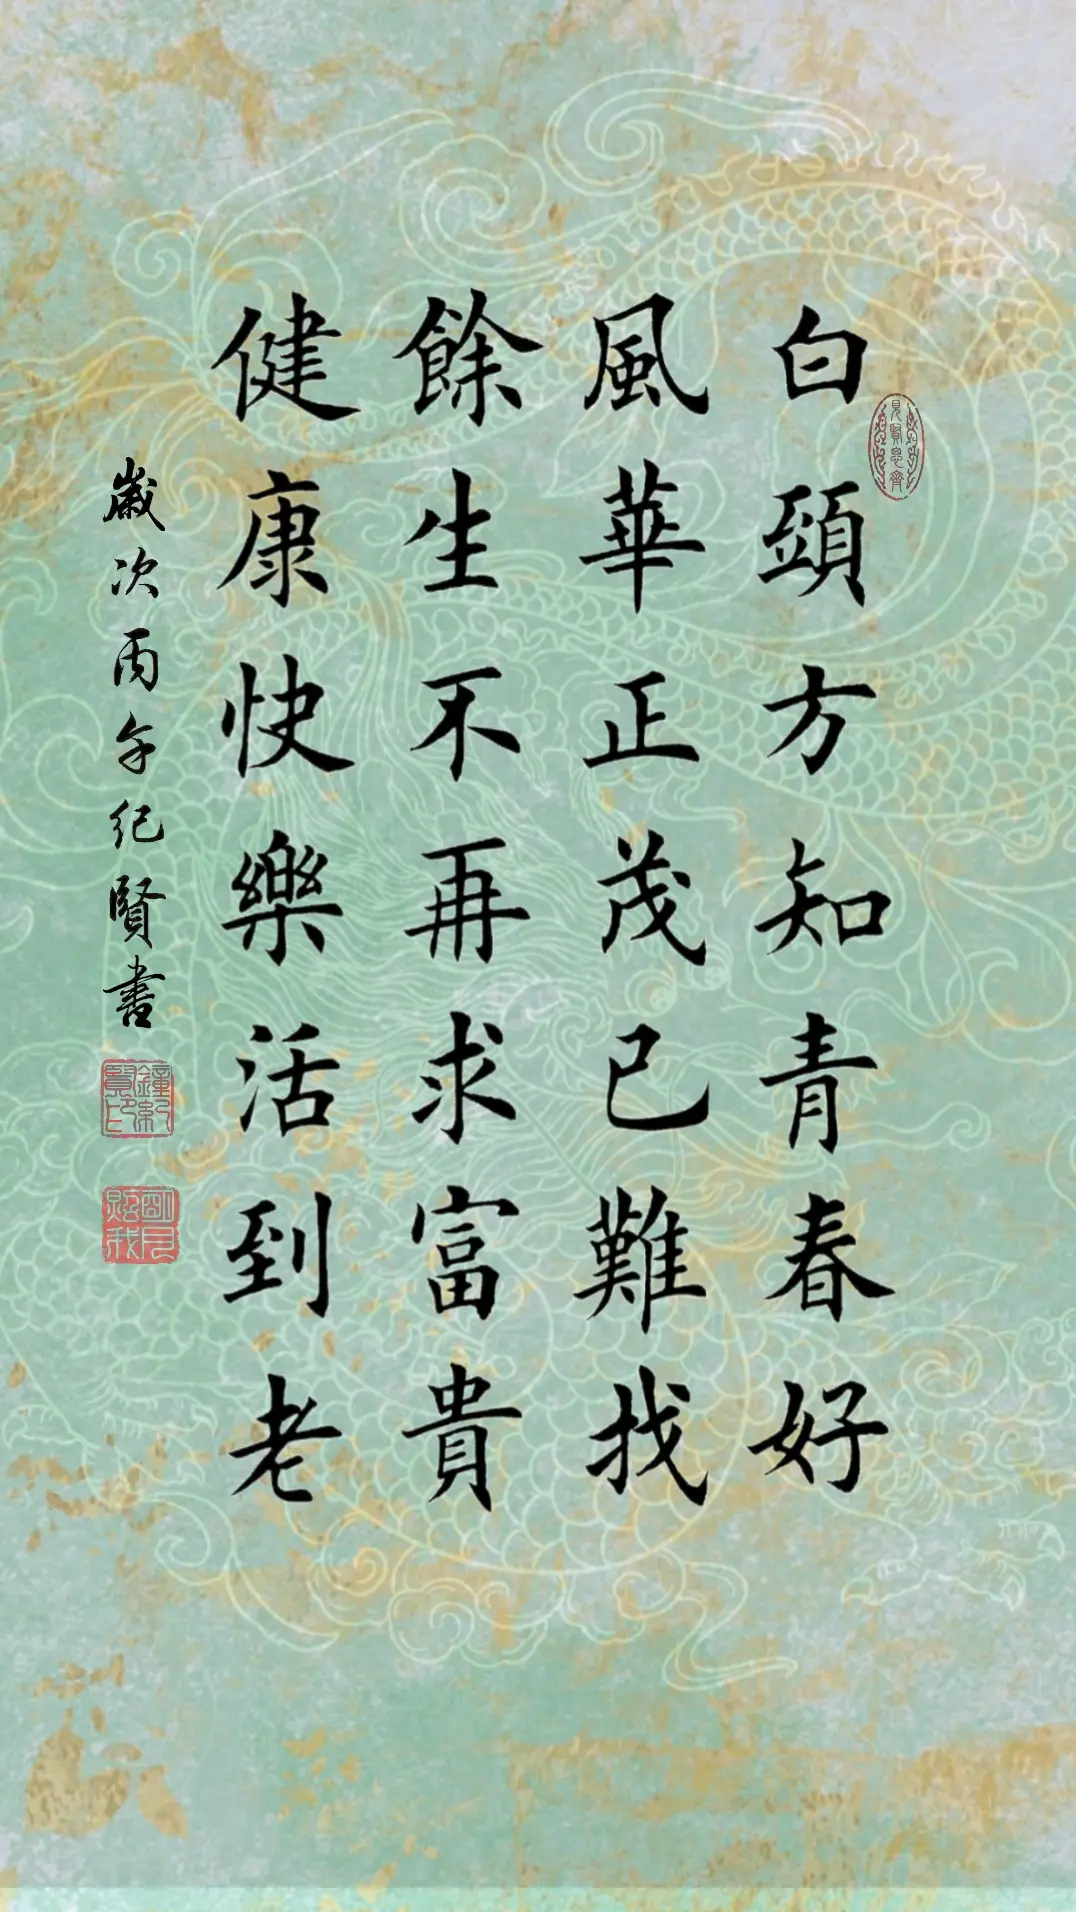 白頭方知青春好
風華正茂已難找
餘生不再求富貴
健康快樂活到老
歲次丙午纪賢書
見賢思齊
鐘紀賢印